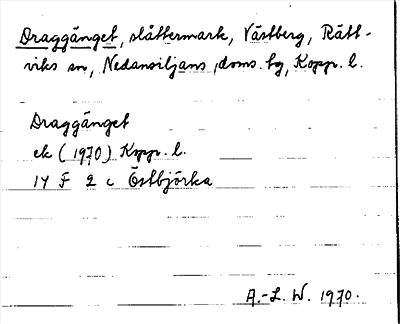 Draggänget, slåttermark, Västberg, Rätt-
viks sn, Nedansiljans doms. tg, Kopp. l.
Draggänget
ek (1970) Kopp. l.
14 F 2 c Östbjörka
A.-L. W. 1970.